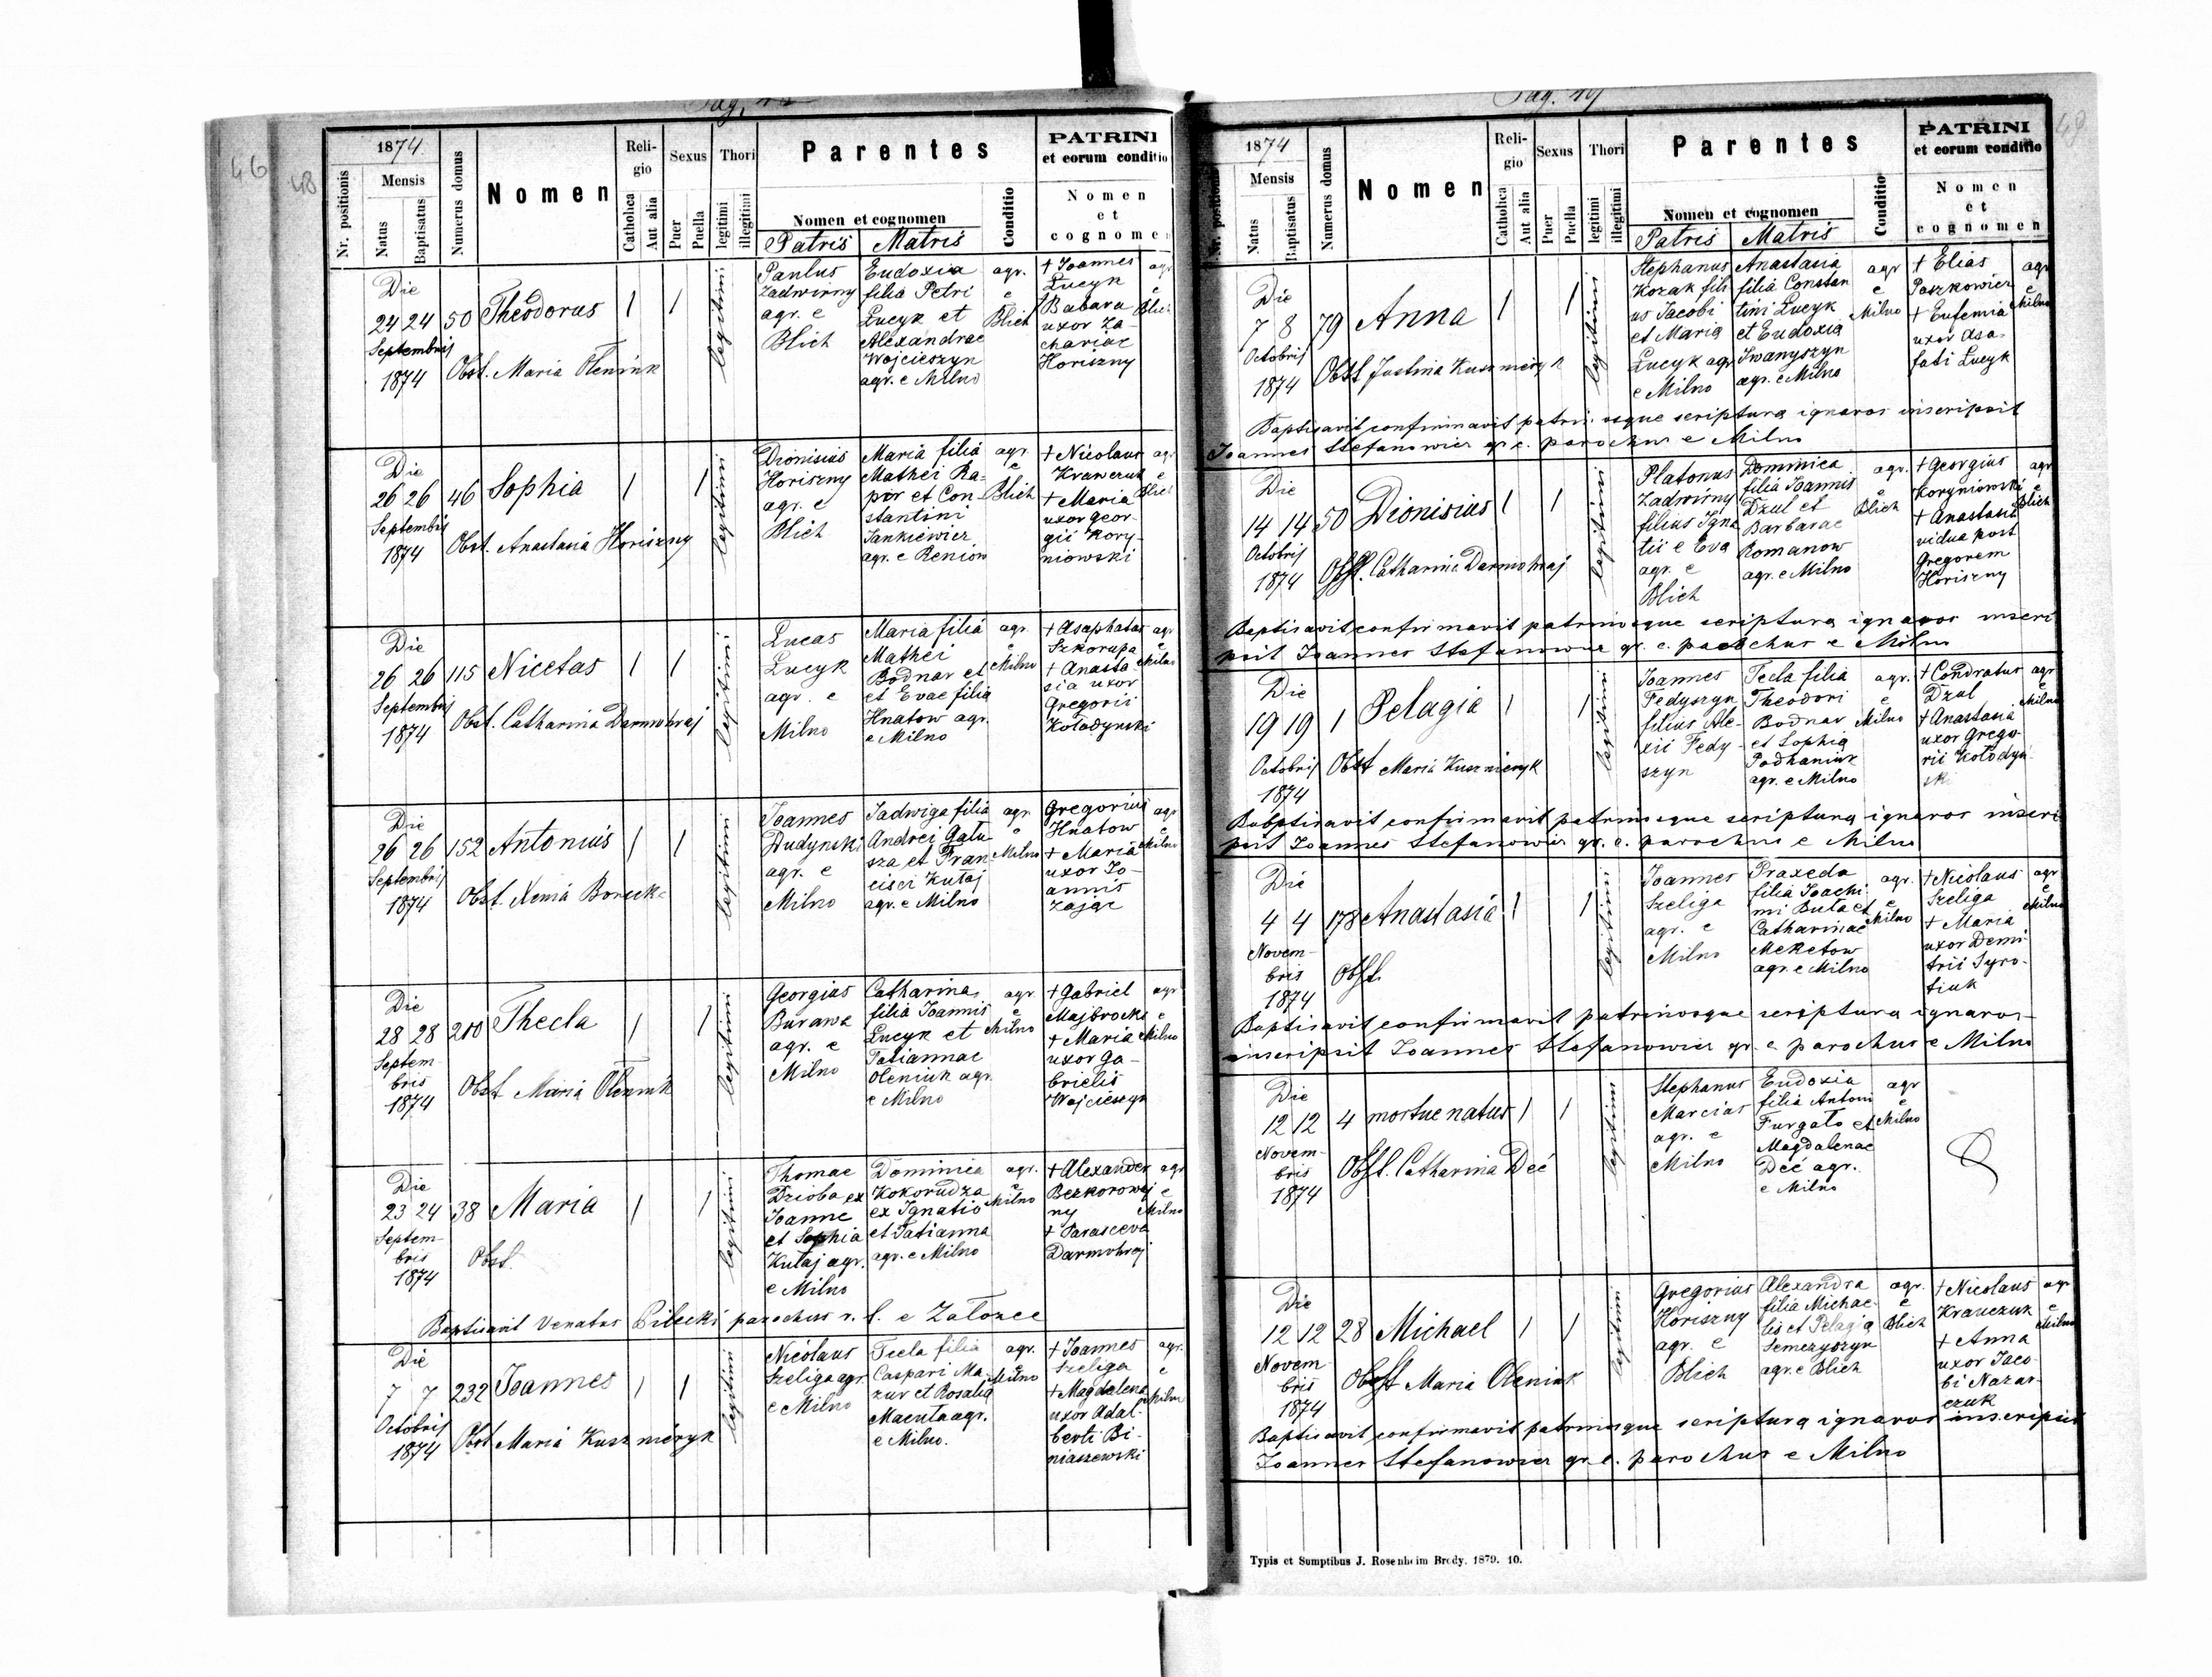 46
48
1874
Nr. positionis
Mensis
Natus
Baptisatus
Numerus domus
Nomen
Religio
Catholica
Aut alia
Sexus
Puer
Puella
Thori
legitimi
illegitimi
Parentes
Nomen et cognomen
Patris
Matris
Conditio
PATRINI
et eorum conditio
Nomen
et
cognomen
Die
24 24 50 Theodorus 1 1 legitimi
Septembris
1874
Obst. Maria Oleniuk
Paulus
Zadwirny
agr. e
Blich
Eudoxia
filia Petri
Lucyk et
Alexandrae
Wojcieszyn
agr. e Milno
agr.
e
Blich
+ Joannes
Lucyk
+ Babara
uxor Za-
chariae
Horiszny
agr
e
Blich
Die
26 26 46 Sophia 1 1 legitimi
Septembris
1874
Obst. Anastasia Horiszny
Dionisius
Horiszny
agr. e
Blich
Maria filia
Mathei Ra-
por et Con-
stantini
Jankiewicz
agr. e Reniow
agr.
e
Blich
+ Nicolaus
Krawczuk
+ Maria
uxor Geor-
gii Kory-
niowski
agr
e
Blich
Die
26 26 115 Nicetas 1 1 legitimi
Septembris
1874
Obst. Catharina Darmohraj
Lucas
Lucyk
agr. e
Milno
Maria filia
Mathei
Bodnar et
et Evae filia
Hnatow agr.
e Milno
agr
e
Milno
+ Asaphatas
Szkorupa
+ Anasta
sia uxor
Gregorii
Kołodynski
agr
e
Milno
Die
26 26 152 Antonius 1 1 legitimi
Septembris
1874
Obst. Xenia
Joannes
Dudynski
agr. e
Milno
Jadwiga filia
Andrei Galu
sza et Fran
cisci Kutaj
agr. e Milno
agr
e
Milno
Gregorius
Hnatow
+ Maria
uxor Jo-
annis
Zając
agr
e
Milno
Die
28 28 210 Thecla 1 1 legitimi
Septem-
bris
1874
Obst Maria Oleniuk
Georgius
Burawa
agr. e
Milno
Catharina
filia Joannis
Lucyk et
Tatiannae
Oleniuk agr.
e Milno
agr.
e
Milno
+ Gabriel
Majbrocki
+ Maria
uxor Ga-
brielis
Wojcieszyn
agr
e
Milno
Die
23 24 38 Maria 1 1 legitimi
Septem-
bris
1874
Obst.
Thomae
Dzioba ex
Joanne
et Sophia
Kutaj agr.
e Milno
Dominica
Kokorudza
ex Ignatio
et Tatianna
agr. e Milno
agr.
e
Milno
+ Alexander
Bezkorowaj
ny
+ Parasceva
Darmohraj
agr
e
Milno
Baptisavit Venatus Pilecki parochus r. l. e Załozce
Die
7 7 232 Joannes 1 1 legitimi
Octobris
1874
Obst Maria Kuszneryk
Nicolaus
Szeliga agr
e Milno
Tecla filia
Caspari Ma-
zur et Rosalia
Macuta agr.
e Milno.
agr.
e
Milno
+ Joannes
Szeliga
+ Magdalena
uxor Adal-
berti Bi-
niaszewski
agr.
e
Milno
Pag. 49
49
1874
Nr. positionis
Mensis
Natus
Baptisatus
Numerus domus
Nomen
Religio
Catholica
Aut alia
Sexus
Puer
Puella
Thori
legitimi
illegitimi
Parentes
Nomen et cognomen
Patris
Matris
Conditio
PATRINI
et eorum conditio
Nomen
et
cognomen
Die
7 8 79 Anna 1 1 legitimi
Octobris
1874
Obst Justina Kuszneryk
Stephanus
Kozak fili
us Jacobi
et Maria
Lucyk agr
e Milno
Anastasia
filia Constan
tini Lucyk
et Eudoxia
Iwanyszyn
agr. e Milno
agr
e
Milno
+ Elias
Paszkowicz
+ Eufemia
uxor Asa-
fati Lucyk
agr
e
Milno
Baptisavit confirmavit patrinosque scriptura ignaros inscripsit
Joannes Stefanowicz gr. c. parochus e Milno
Die
14 14 50 Dionisius 1 1 legitimi
Octobris
1874
Obst. Catharina Darmohraj
Platonus
Zadwirny
filius Igna
tii e Eva
agr. e
Blich
Dominica
filia Joannis
Dzul et
Barbarae
Romanow
agr. e Milno
agr.
e
Blich
+ Georgius
Koryniowski
+ Anastasia
vidua post
Gregorem
Horiszny
agr
e
Blich
Baptisavit confirmavit patrinosque scriptura ignaros inscri
psit Joannes Stefanowicz gr. c. parochus e Milno
Die
19 19 1 Pelagia 1 1 legitimi
Octobris
1874
Obst Maria Kuszneryk
Joannes
Fedyszyn
filius Ale-
xii Fedy-
szyn
Tecla filia
Theodori
Bodnar
et Sophia
Podhaniuk
agr. e Milno
agr.
e
Milno
+ Condratus
Dzul
+ Anastasia
uxor Grego-
rii Kołodyn-
ski
agr
e
Milno
Babptisavit confirmavit patrinosque scriptura ignaros inscri
psit Joannes Stefanowicz gr. c. parochus e Milno
Die
4 4 178 Anastasia 1 1 legitimi
Novem-
bris
1874
Obst.
Joannes
Szeliga
agr. e
Milno
Praxeda
filia Joachi
mi Buta et
Catharinae
Meketow
agr. e Milno
agr.
e
Milno
+ Nicolaus
Szeliga
+ Maria
uxor Demi-
trii Syro-
tiuk
agr
e
Milno
Baptisavit confirmavit patrinosque scriptura ignaros
inscripsit Joannes Stefanowicz gr. c parochus e Milno
Die
12 12 4 mortue natus 1 1 legitimi
Novem-
bris
1874
Obst. Catharina Deć
Stephanus
Marcias
agr. e
Milno
Eudoxia
filia Antoni
Furgato et
Magdalenae
Deć agr.
e Milno
agr
e
Milno
Die
12 12 28 Michael 1 1 legitimi
Novem
bris
1874
Obst Maria Oleniuk
Gregorius
Horiszny
agr. e
Blich
Alexandra
filia Michae
lis et Pelagia
Semczyszyn
agr. e Blich
agr.
e
Blich
+ Nicolaus
Krawczuk
+ Anna
uxor Jaco-
bi Nazar-
czuk
agr
e
Milno
Baptisavit confirmavit patrinosque scriptura ignaros inscripsit
Joannes Stefanowicz gr. c. parochus e Milno
Typis et Sumptibus J. Rosenheim Brody. 1879. 10.